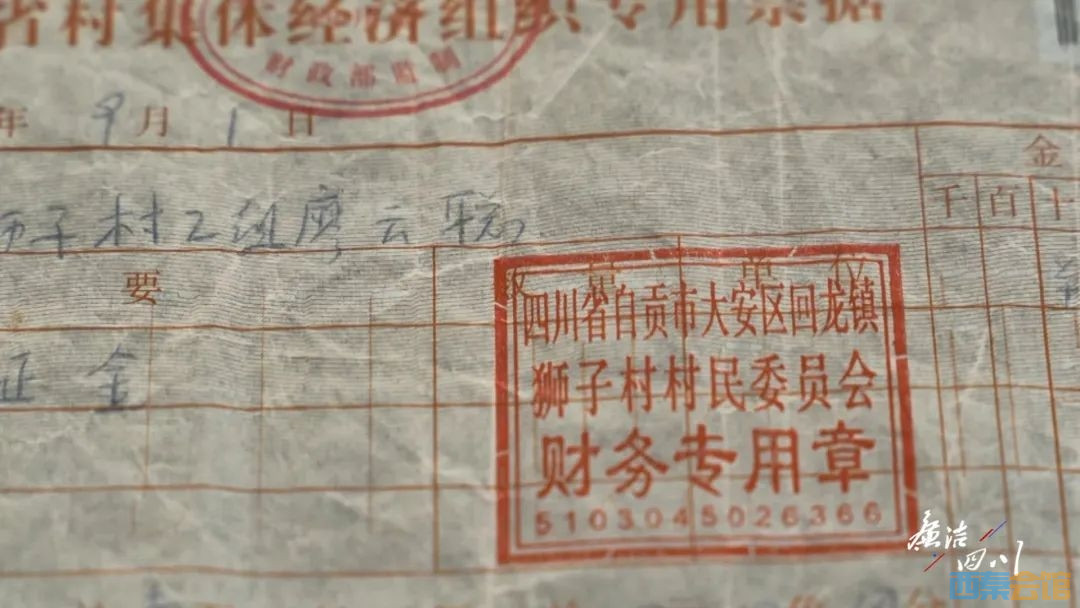 省村集体经济组织专用票据
财政部监制
年 9月1日
金
千百十
狮子村2组廖云聪
要
四川省自贡市大安区回龙镇
狮子村村民委员会
财务专用章
5103045026366
证金
廉洁四川
西秦会馆